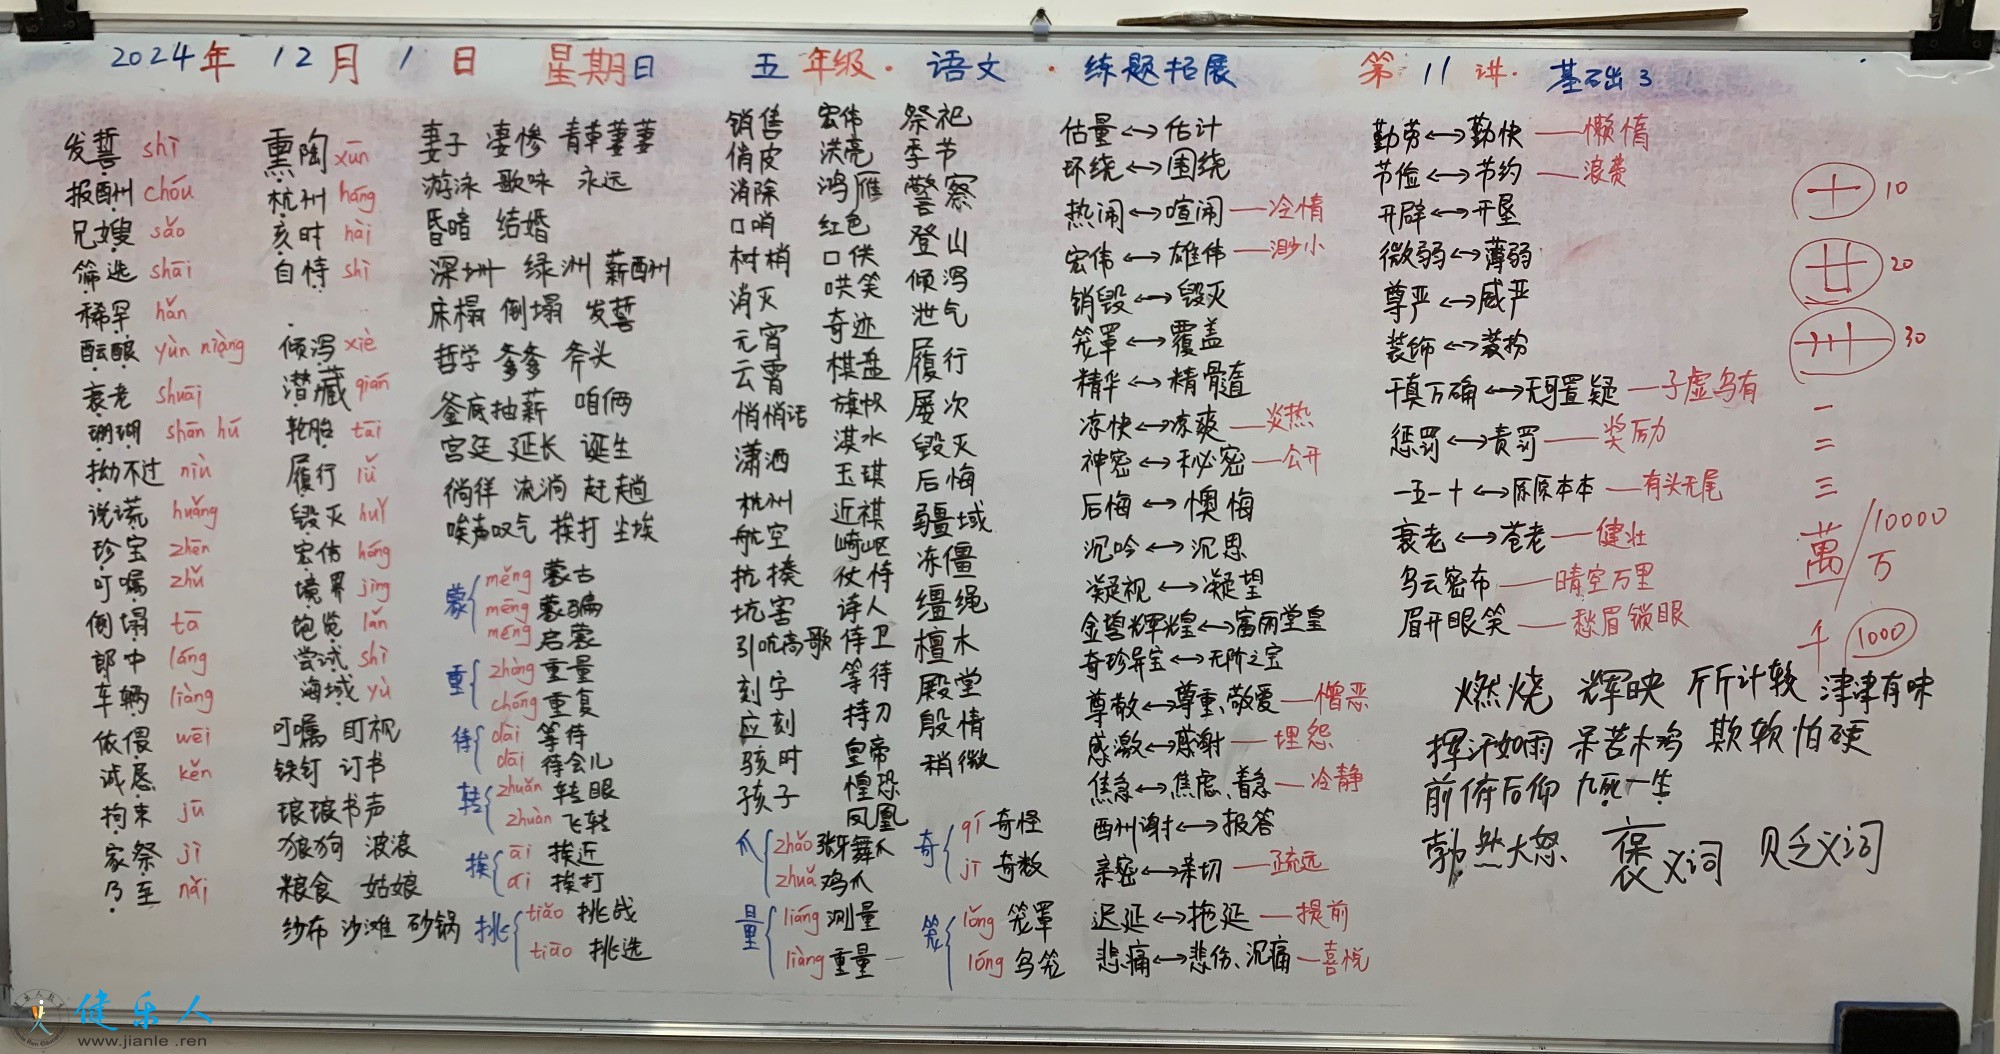 2024年 12月 1日 星期日 五年级·语文·练题拓展 第11讲·基础3
发誓 shì
报酬 chóu
兄嫂 sǎo
筛选 shāi
稀罕 hǎn
酝酿 yùn niàng
衰老 shuāi
珊瑚 shān hú
拗不过 niù
说谎 huǎng
珍宝 zhēn
叮嘱 zhǔ
倒塌 tā
郎中 láng
车辆 liàng
依偎 wēi
诚恳 kěn
拘束 jū
家祭 jì
乃至 nǎi
熏陶 xūn
杭州 háng
亥时 hài
自恃 shì
倾泻 xiè
潜藏 qián
轮胎 tāi
履行 lǚ
毁灭 huǐ
宏伟 hóng
境界 jìng
饱览 lǎn
尝试 shì
海域 yù
叮嘱 盯视
铁钉 订书
琅琅书声
狼狗 波浪
粮食 姑娘
纱布 沙滩 砂锅
妻子 凄惨 青草萋萋
游泳 歌咏 永远
昏暗 结婚
深圳 绿洲 薪酬
床榻 倒塌 发誓
哲学 爹爹 斧头
釜底抽薪 咱俩
宫廷 延长 诞生
徜徉 流淌 赶趟
唉声叹气 挨打 尘埃
蒙 měng 蒙古
mēng 蒙骗
méng 启蒙
重 zhòng 重量
chóng 重复
待 dài 等待
dāi 待会儿
转 zhuǎn 转眼
zhuàn 飞转
挨 āi 挨近
ái 挨打
挑 tiǎo 挑战
tiāo 挑选
销售
俏皮
消除
口哨
树梢
消灭
元宵
云霄
悄悄话
潇洒
杭州
航空
抗揍
坑害
引吭高歌
刻字
应刻
骇时
孩子
爪 zhǎo 张牙舞爪
zhuǎ 鸡爪
量 liáng 测量
liàng 重量
宏伟
洪亮
鸿雁
红色
口供
哄笑
奇迹
棋盘
旗帜
淇水
玉琪
近祺
崎岖
仗恃
诗人
侍卫
等待
持刀
皇帝
惶恐
凤凰
祭祀
季节
警察
登山
倾泻
泄气
履行
屡次
毁灭
后悔
疆域
冻僵
缰绳
檀木
殿堂
殷情
稍微
奇 qí 奇怪
jī 奇数
笼 lǒng 笼罩
lóng 鸟笼
估量↔估计
环绕↔围绕
热闹↔喧闹—冷情
宏伟↔雄伟—渺小
销毁↔毁灭
笼罩↔覆盖
精华↔精髓
凉快↔凉爽—炎热
神密↔秘密—公开
后悔↔懊悔
沉吟↔沉思
凝视↔凝望
金碧辉煌↔富丽堂皇
奇珍异宝↔无价之宝
尊敬↔尊重、敬爱—憎恶
感激↔感谢—埋怨
焦急↔焦虑、着急—冷静
酬谢↔报答
亲密↔亲切—疏远
迟延↔拖延—提前
悲痛↔悲伤、沉痛—喜悦
勤劳↔勤快—懒惰
节俭↔节约—浪费
开辟↔开垦
微弱↔薄弱
尊严↔威严
装饰↔装扮
千真万确↔无可置疑—子虚乌有
惩罚↔责罚—奖励
一五一十↔原原本本—有头无尾
衰老↔苍老—健壮
乌云密布—晴空万里
眉开眼笑—愁眉锁眼
十 10
廿 20
卅 30
一
二
三
萬/10000
万
千 1000
燃烧 辉映 斤斤计较 津津有味
挥汗如雨 呆若木鸡 欺软怕硬
前俯后仰 九死一生
勃然大怒 褒义词 贬义词
健乐人
www.jianle.ren